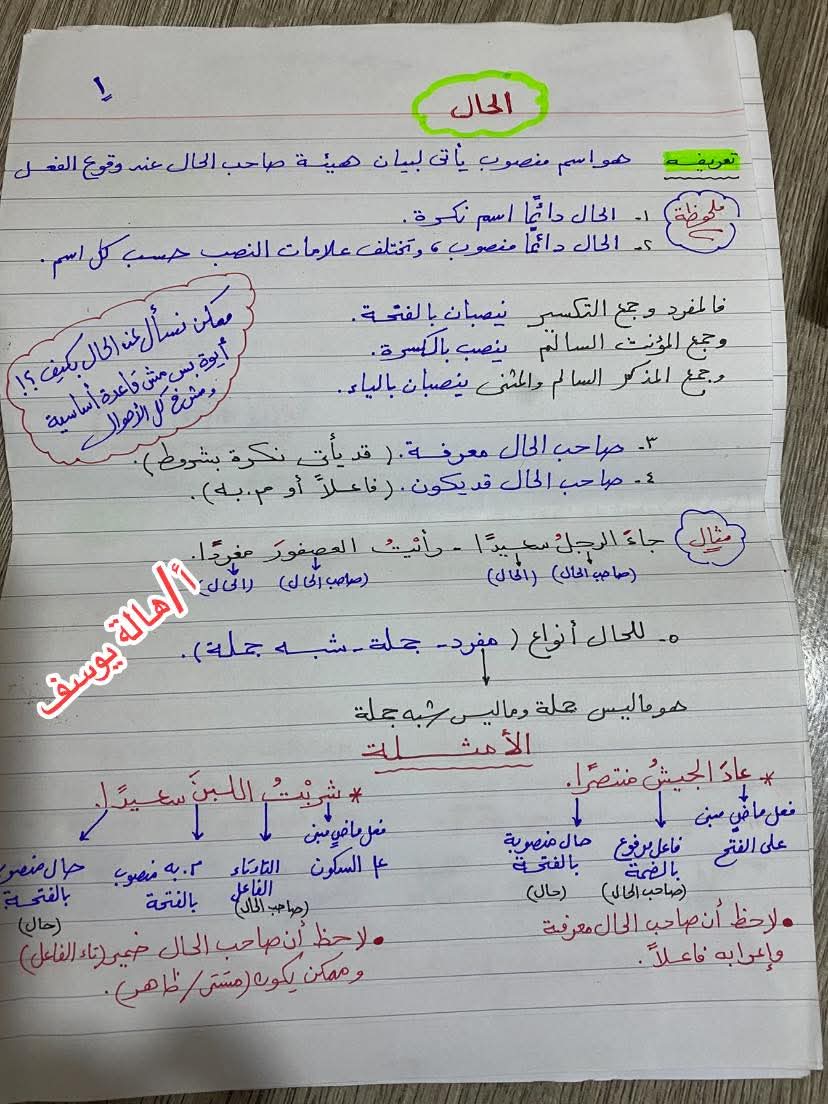 ١
الحال
تعريفه هو اسم منصوب يأتى لبيان هيئة صاحب الحال عند وقوع الفعل
ملحوظة
١- الحال دائمًا اسم نكرة.
٢- الحال دائمًا منصوب، وتختلف علامات النصب حسب كل اسم.
فالمفرد وجمع التكسير ينصبان بالفتحة.
وجمع المؤنث السالم ينصب بالكسرة.
وجمع المذكر السالم والمثنى ينصبان بالياء.
ممكن نسأل عن الحال بكيف؟!
أيوة بس مش قاعدة أساسية
ومش في كل الأحوال
٣- صاحب الحال معرفة. (قد يأتى نكرة بشروط).
٤- صاحب الحال قد يكون. (فاعلاً أو م.به).
مثال جاءَ الرجلُ سعيدًا - رأيْتُ العصفورَ مغردًا.
(صاحب الحال) (الحال) (صاحب الحال) (الحال)
أ/هالة يوسف
٥- للحال أنواع (مفرد - جملة - شبه جملة).
هو ماليس جملة وماليس شبه جملة
الأمثلة
* عادَ الجيشُ منتصرًا.
فعل ماضٍ مبنى على الفتح
فاعل مرفوع بالضمة (صاحب الحال)
حال منصوبة بالفتحة (حال)
• لاحظ أن صاحب الحال معرفة
وإعرابه فاعلاً.
* شربْتُ اللبنَ سعيدًا.
فعل ماضٍ مبنى على السكون
التاء تاء الفاعل (صاحب الحال)
م.به منصوب بالفتحة
حال منصوب بالفتحة (حال)
• لاحظ أن صاحب الحال ضمير (تاء الفاعل)
وممكن يكون (مستتر/ظاهر).